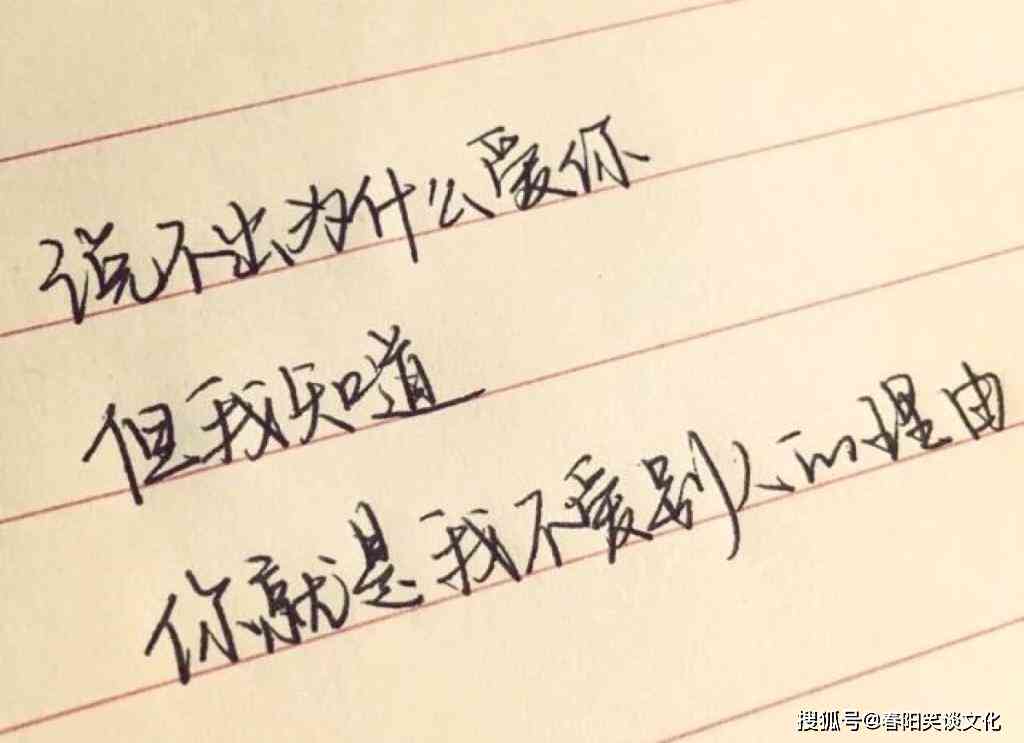 说不出为什么爱你
但我知道
你就是我不爱别人的理由
搜狐号@春阳笑谈文化